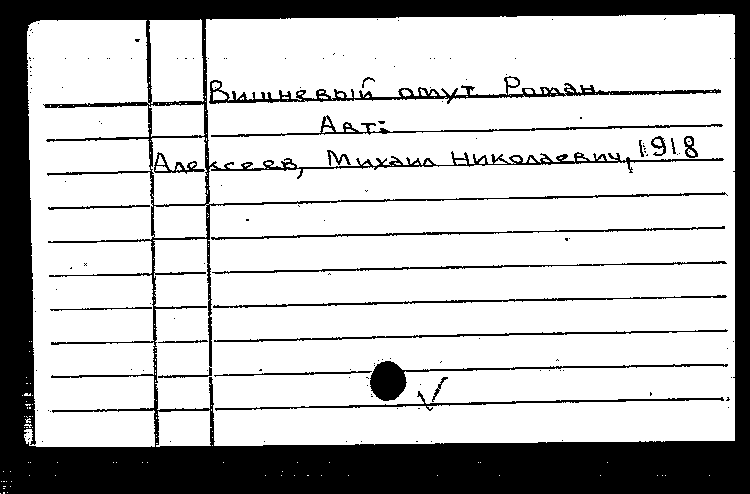 Вишневый омут Роман.
Авт:
Алексеев, Михаил Николаевич, 1918